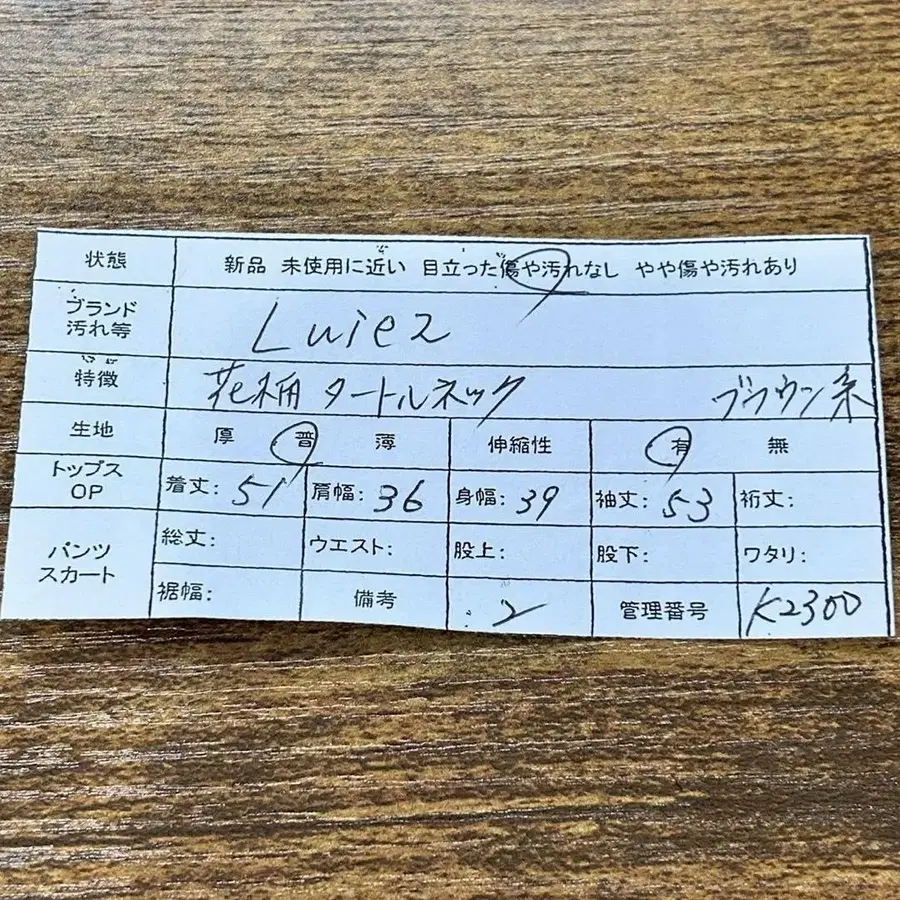 状態 新品 未使用に近い 目立った傷や汚れなし やや傷や汚れあり
ブランド
汚れ等
Luiez
特徴 花柄 タートルネック ブラウン系
生地 厚 普 薄 伸縮性 有 無
トップス
OP
着丈: 51 肩幅: 36 身幅: 39 袖丈: 53 裄丈:
パンツ
スカート
総丈: ウエスト: 股上: 股下: ワタリ:
裾幅: 備考 2 管理番号 K2300